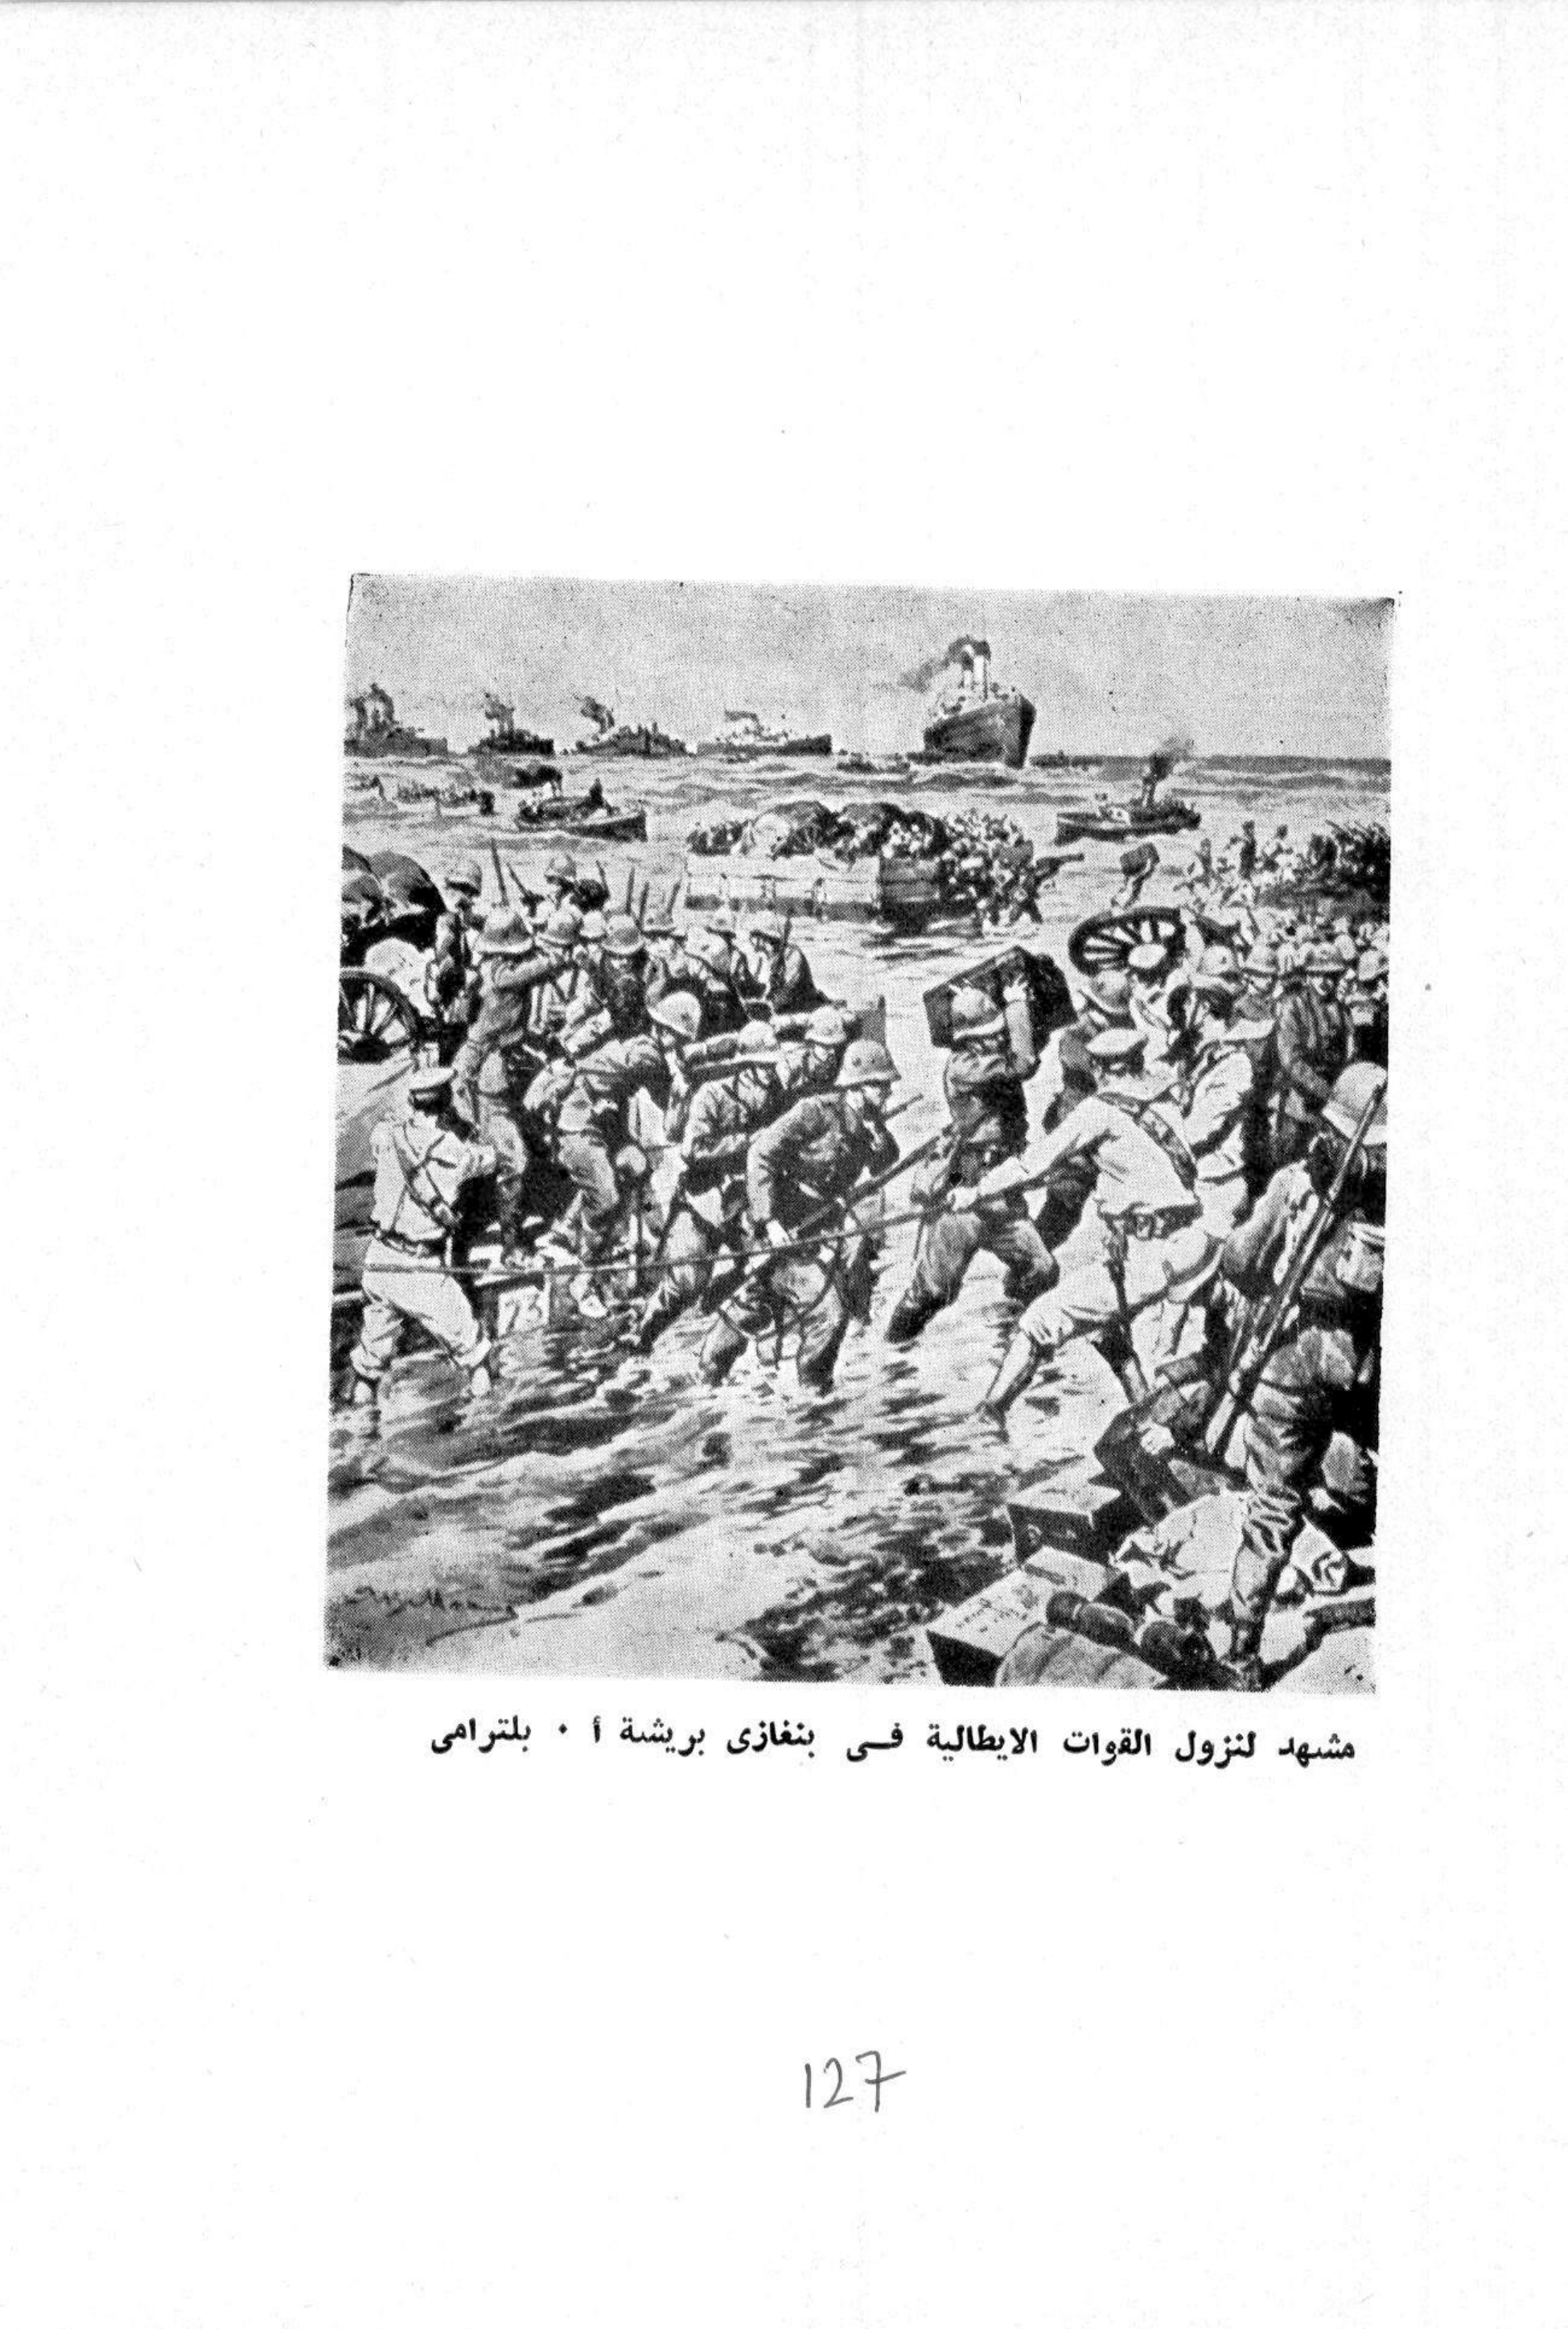 73
مشهد لنزول القوات الايطالية فى بنغازى بريشة أ ٠ بلترامى
127